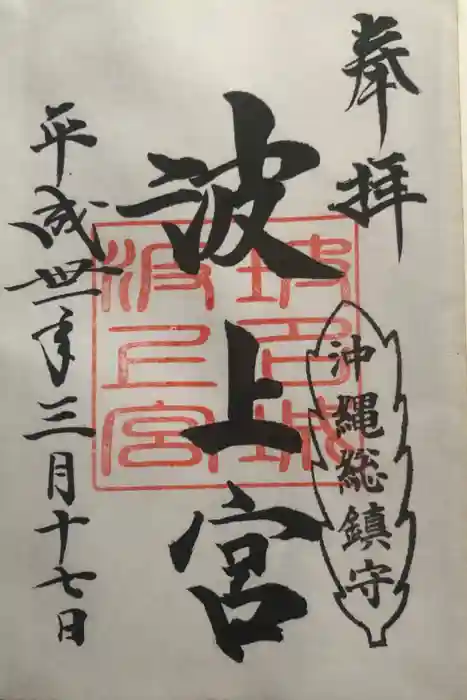 奉拝
沖縄総鎮守
波上宮
波上宮
平成丗一年三月十七日